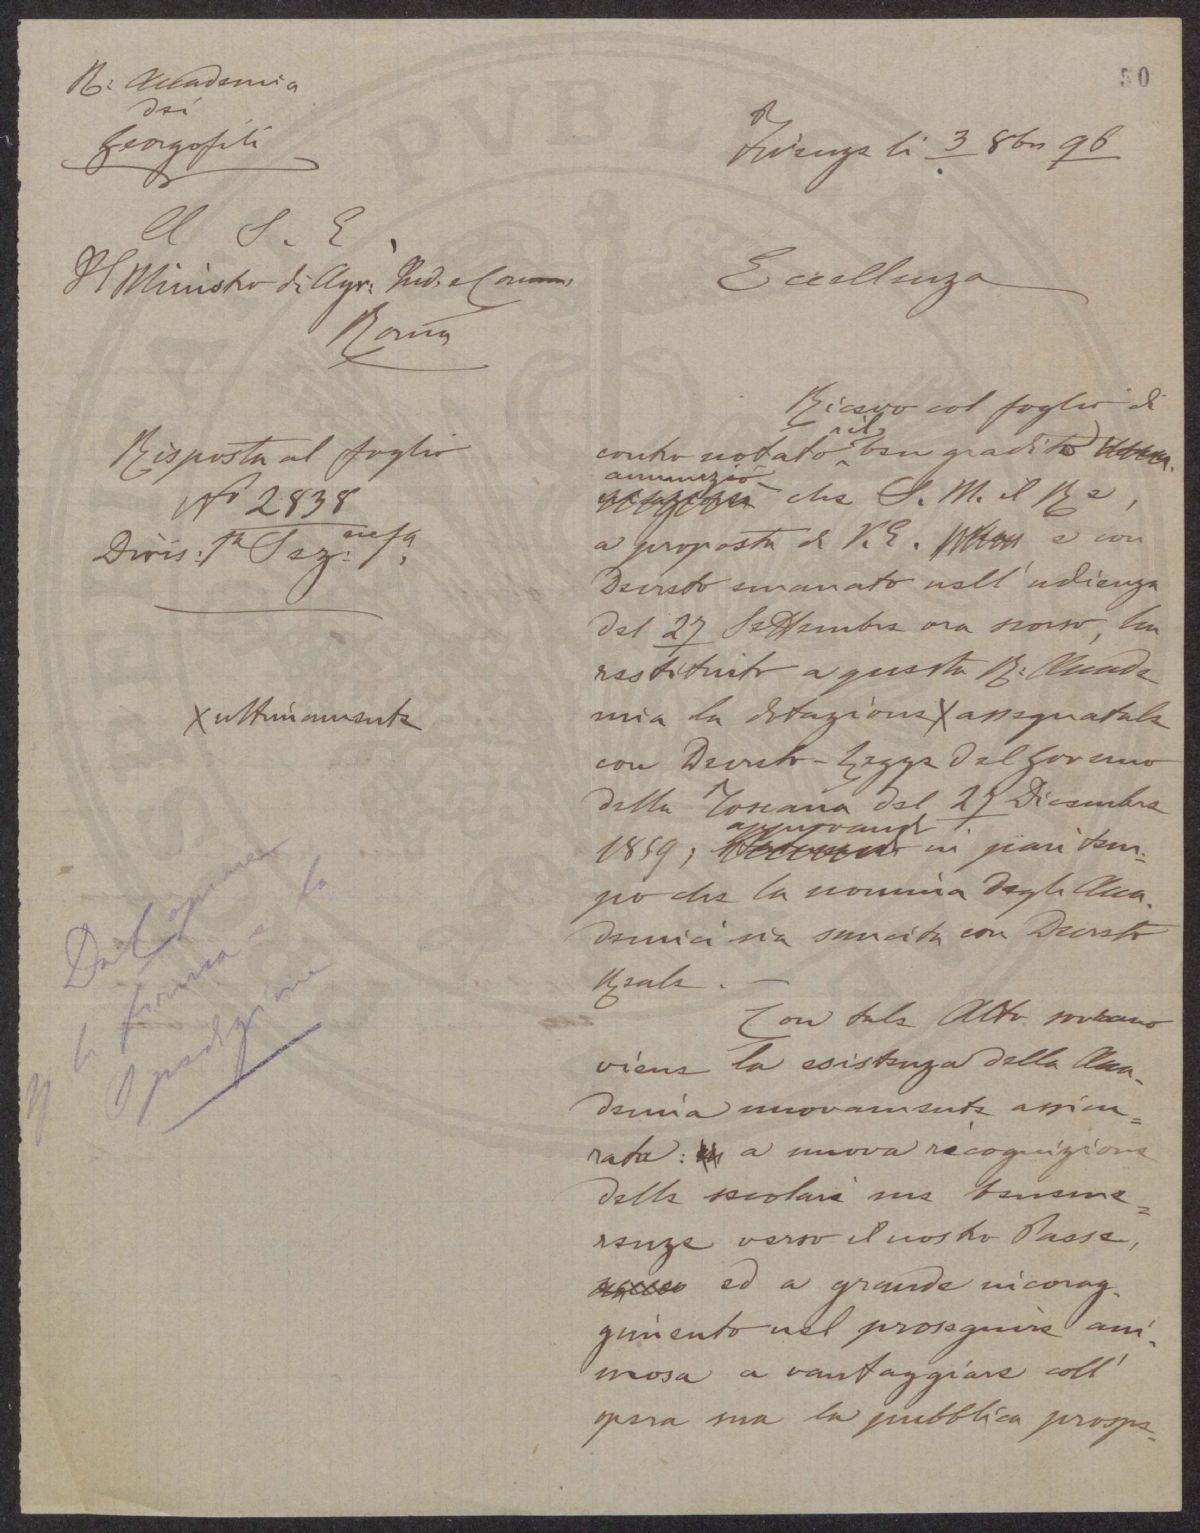 50
R: Accademia
dei
Georgofili
Firenze li 3 8bre 96
A S. E.
Il Ministro di Agr: Ind: e Comm:
Roma
Eccellenza
Risposta al foglio
N° 2838
Divis: 1ª Sez:
X ultimamente
Ricevo col foglio di
contro notato il ben gradito
annunzio che S. M. il Re,
a proposta di V. E. e con
Decreto emanato nell'udienza
del 27 Settembre ora scorso, ha
restituito a questa R: Accade
mia la dotazione X assegnatale
con Decreto-Legge del Governo
della Toscana del 27 Dicembre
1859; approvando in pari tem-
po che la nomina degli Acca-
demici sia sancita con Decreto
Reale. —
Con tale Alto sovrano
viene la esistenza della Acca-
demia nuovamente assicu=
rata: a nuova ricognizione
delle secolari sue beneme=
renze verso il nostro Paese,
ed a grande incorag-
gimento nel proseguire ani-
mosa a vantaggiare coll'
opera sua la pubblica prospe-
Dal
la firma e la
Spedizione